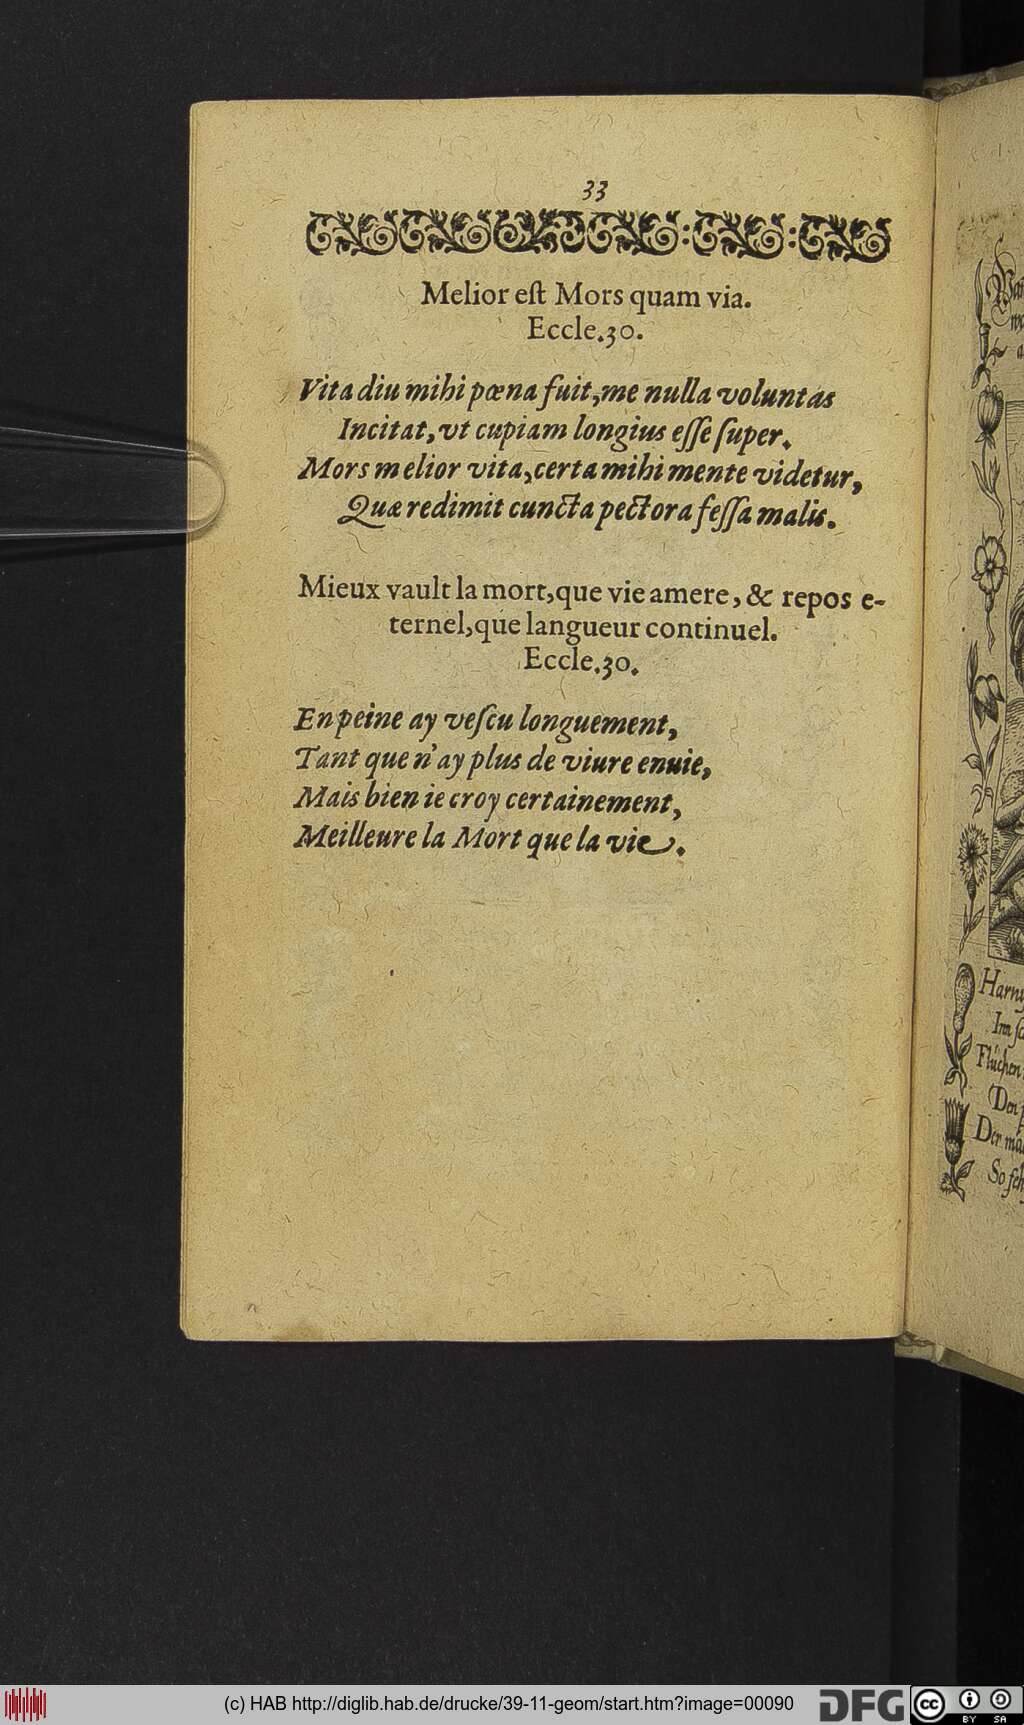 33
Melior eſt Mors quam via.
Eccle.30.
Vita diu mihi pœna fuit, me nulla voluntas
Incitat, vt cupiam longius eſſe ſuper.
Mors melior vita, certa mihi mente videtur,
Quæ redimit cuncta pectora feſſa malis.
Mieux vault la mort, que vie amere, & repos e-
ternel, que langueur continuel.
Eccle.30.
En peine ay veſcu longuement,
Tant que n'ay plus de viure enuie,
Mais bien ie croy certainement,
Meilleure la Mort que la vie.
Flüchen
Der
So
(c) HAB http://diglib.hab.de/drucke/39-11-geom/start.htm?image=00090
DFG
cc
BY SA